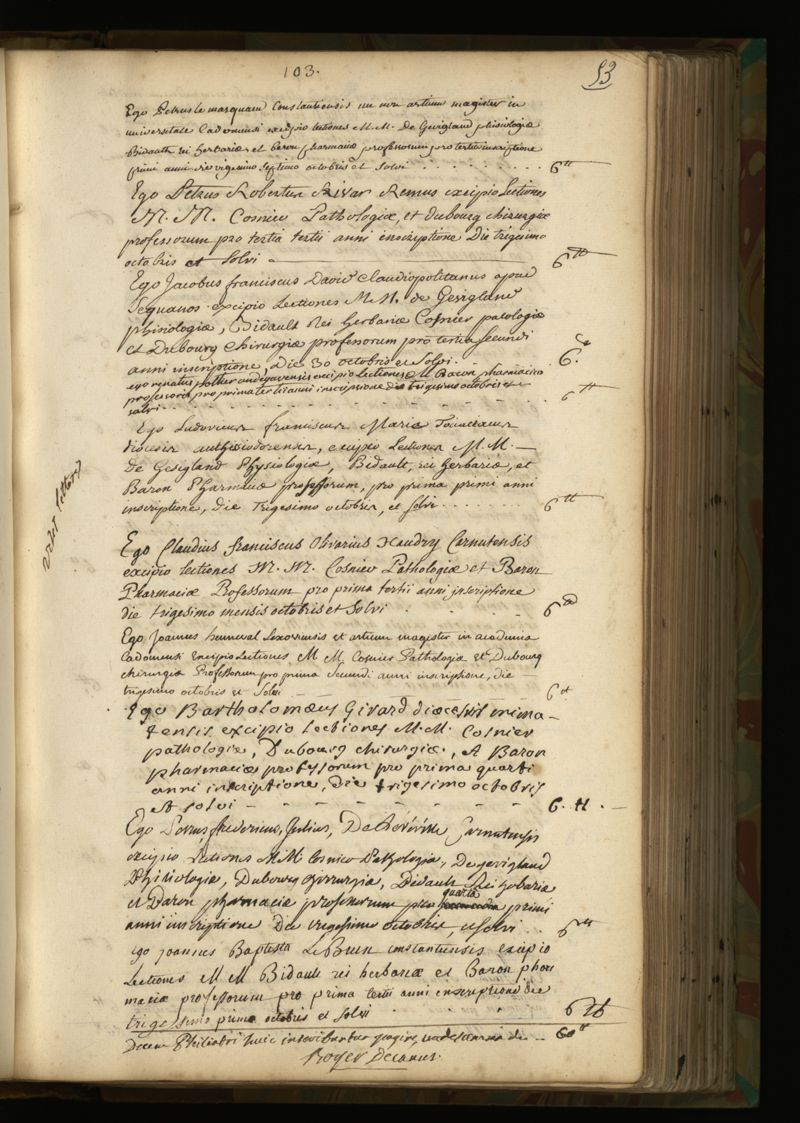 103.
53
Ego Petrus le marquand Constantiensis nec non artium magister in
universitate Cadomensi excipio lectiones M.M. De Gevigland phisiologiæ
Bidault rei herbariæ et Baron pharmaciæ professorum pro tertia inscriptione
primi anni die vigesimo septimo octobris et solvi . . . . . . . . . 6 tt
Ego Petrus Robertus Rivar Remus excipio Lectiones
M. M. Cosnier Pathologiæ, et dubourg chirurgiæ
professorum pro tertia tertii anni inscriptione Die trigesimo
octobris et solvi 6 tt
Ego Jacobus franciscus David Claudiopolitanus apud
Sequanos excipio Lectiones M.M. de Gevigland
phisiologiæ, Bidault Rei herbariæ Cosnier patologiæ
et Dubourg Chirurgiæ professorum pro tertia secundi
anni inscriptione, die 30 octobris et solvi . . 6.
ego renatus pother andegavensis excipio Lectiones M Baron pharmaciæ
professoris pro prima tertii anni inscriptione die trigesimo octobris et
solvi . . - - - - - - - 6 tt
Ego Ludovicus franciscus Maria
diocesis authisiodorensis, excipio Lectiones M.M.
de Gevigland Physiologiæ, Bidault, rei herbariæ, et
Baron Pharmaciæ professorum, pro prima primi anni
inscriptione, die Trigesimo octobris, et solvi . . . . . . . 6 tt
videt litteras
Ego Claudius franciscus Olivarius Naudry Carnutensis
excipio lectiones M. M. Cosnier Pathologiæ et Baron
Pharmaciæ Professorum pro prima tertii anni inscriptione
die trigesimo mensis octobris et solvi . . . . . 6 tt
Ego Joannes hunneval Lexoviensis et artium magister in academia
Cadomensi excipio Lectiones M M Cosnier Pathologiæ et Dubourg
chirurgiæ Professorum pro prima secundi anni inscriptione, die
trigesimo octobris et solvi 6 tt
Ego Bartholomæus Girard diæcesis mima-
tensis excipio lectiones M.M. Cosnier
pathologiæ, Dubourg chirurgiæ, et Baron
pharmaciæ professorum pro prima quarti
anni inscriptione, die trigesimo octobris
et solvi - - - - - - 6. tt.
Ego Petrus, fredericus, Julius, Carnutensis
excipio lectiones M.M. Cosnier Pathologiæ, De gevigland
Phisiologiæ, Dubourg chirurgiæ, Bidault Rei herbariæ
et Baron pharmaciæ professorum pro quarta primi
anni inscriptione Die trigesimo octobris, et solvi . . 6 tt
Ego joannes Baptista LeBrun constantiensis excipio
Lectiones M M Bidault rei herbariæ et Baron phar
maciæ professorum pro prima tertii anni inscriptione die
trigessimo prima octobris et solvi . . . . . 6 tt
Decem Philiatri huic inscribuntur pagine, unde summa de . . 60 tt
Royer Decanus.